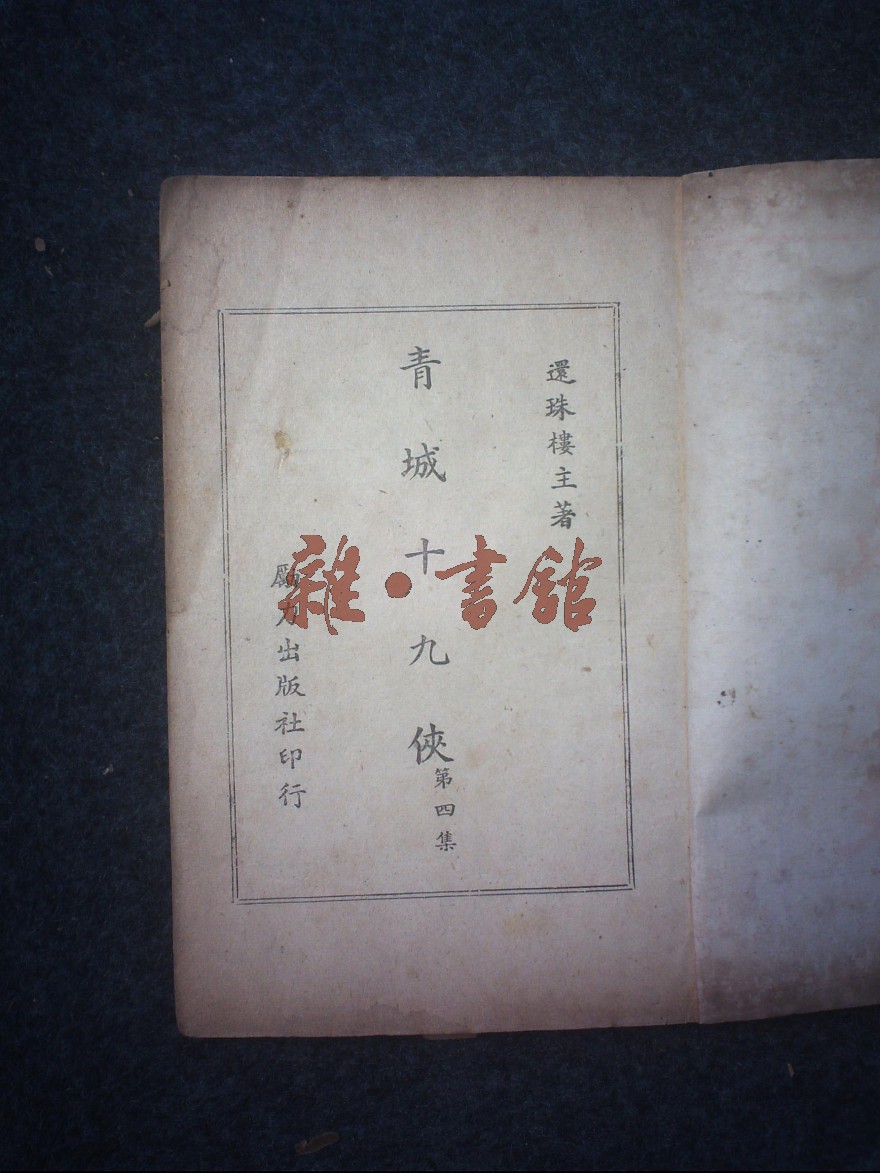 還珠樓主著
青城十九俠
第四集
勵力出版社印行
雜·書館